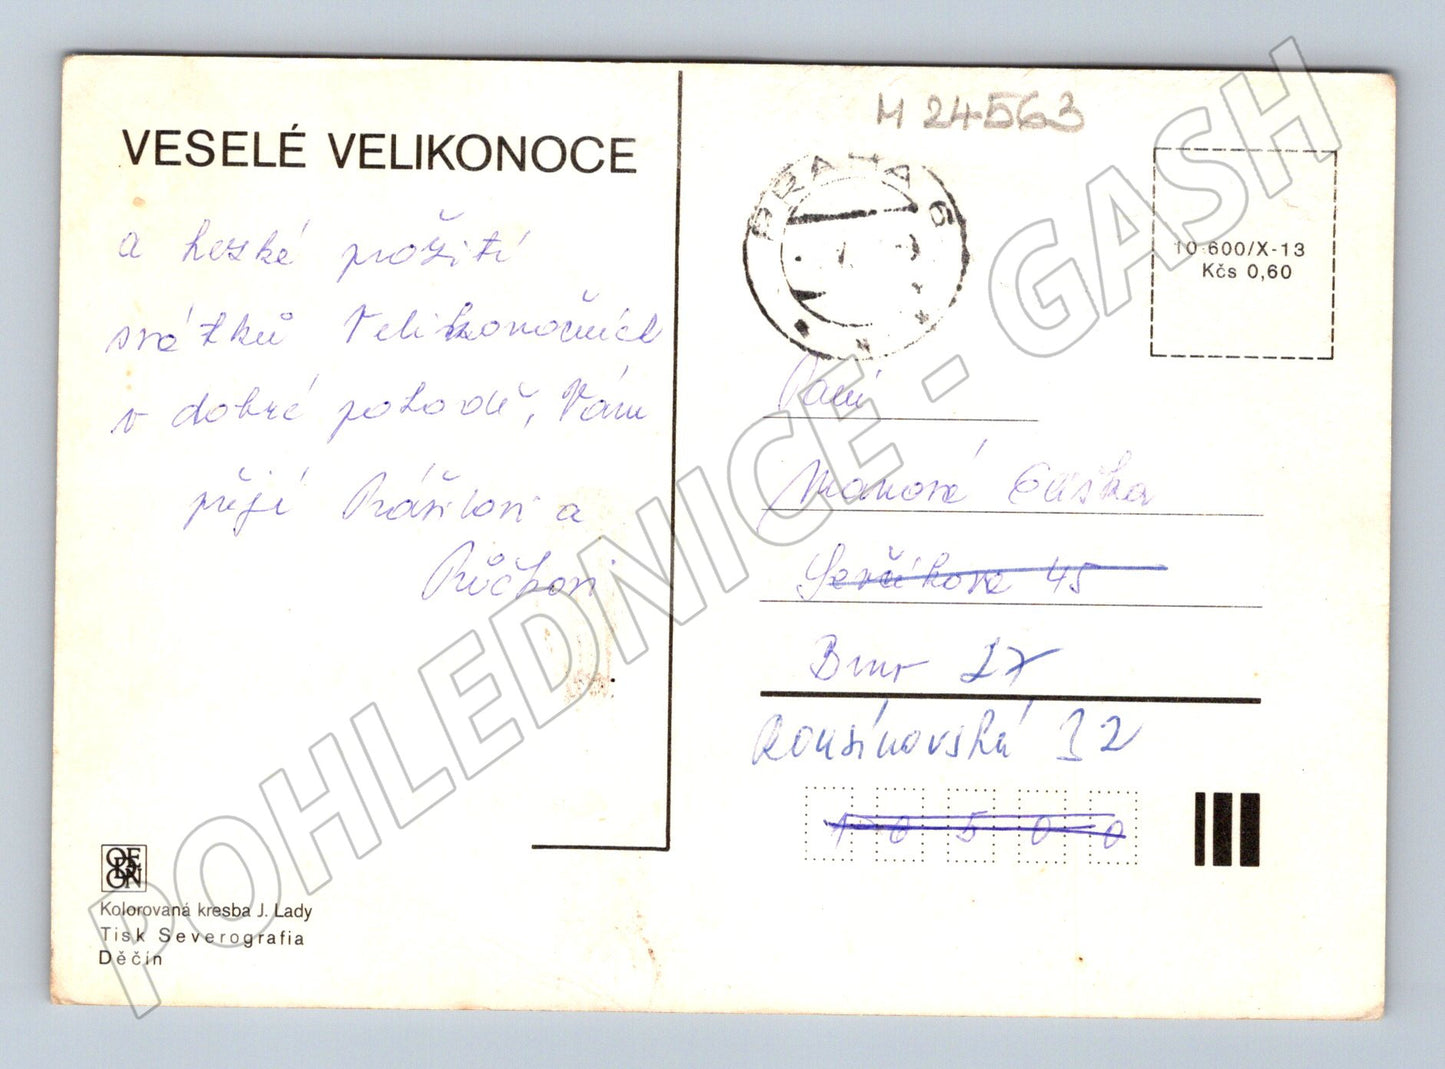 VESELÉ VELIKONOCE
a hezké prožití
svátků Velikonočních
v dobré pohodě, Vám
přejí Prášilovi a
M 24563
PRAHA 6
10-600/X-13
Kčs 0,60
Paní
Eliška
45
Brno 17
Rousínovská 12
1 6 5 0 0
ODEON
Kolorovaná kresba J. Lady
Tisk Severografia
Děčín
POHLEDNICE - GASH